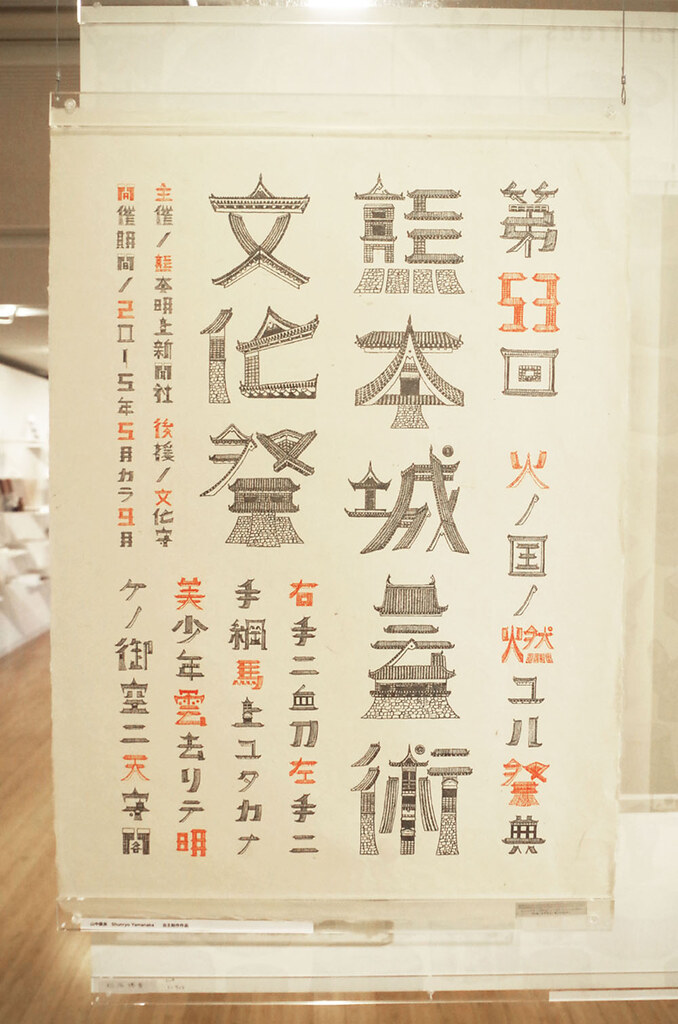 第53回 火ノ国ノ燃ユル祭典
熊本城芸術
文化祭
右手ニ血刀左手ニ
手綱馬上ユタカナ
美少年雲去リテ明
ケノ御空ニ天守閣
主催ノ熊本明上新聞社 後援ノ文化守
開催期間ノ2015年5月カラ9月
Shunryo Yamanaka 自主制作作品